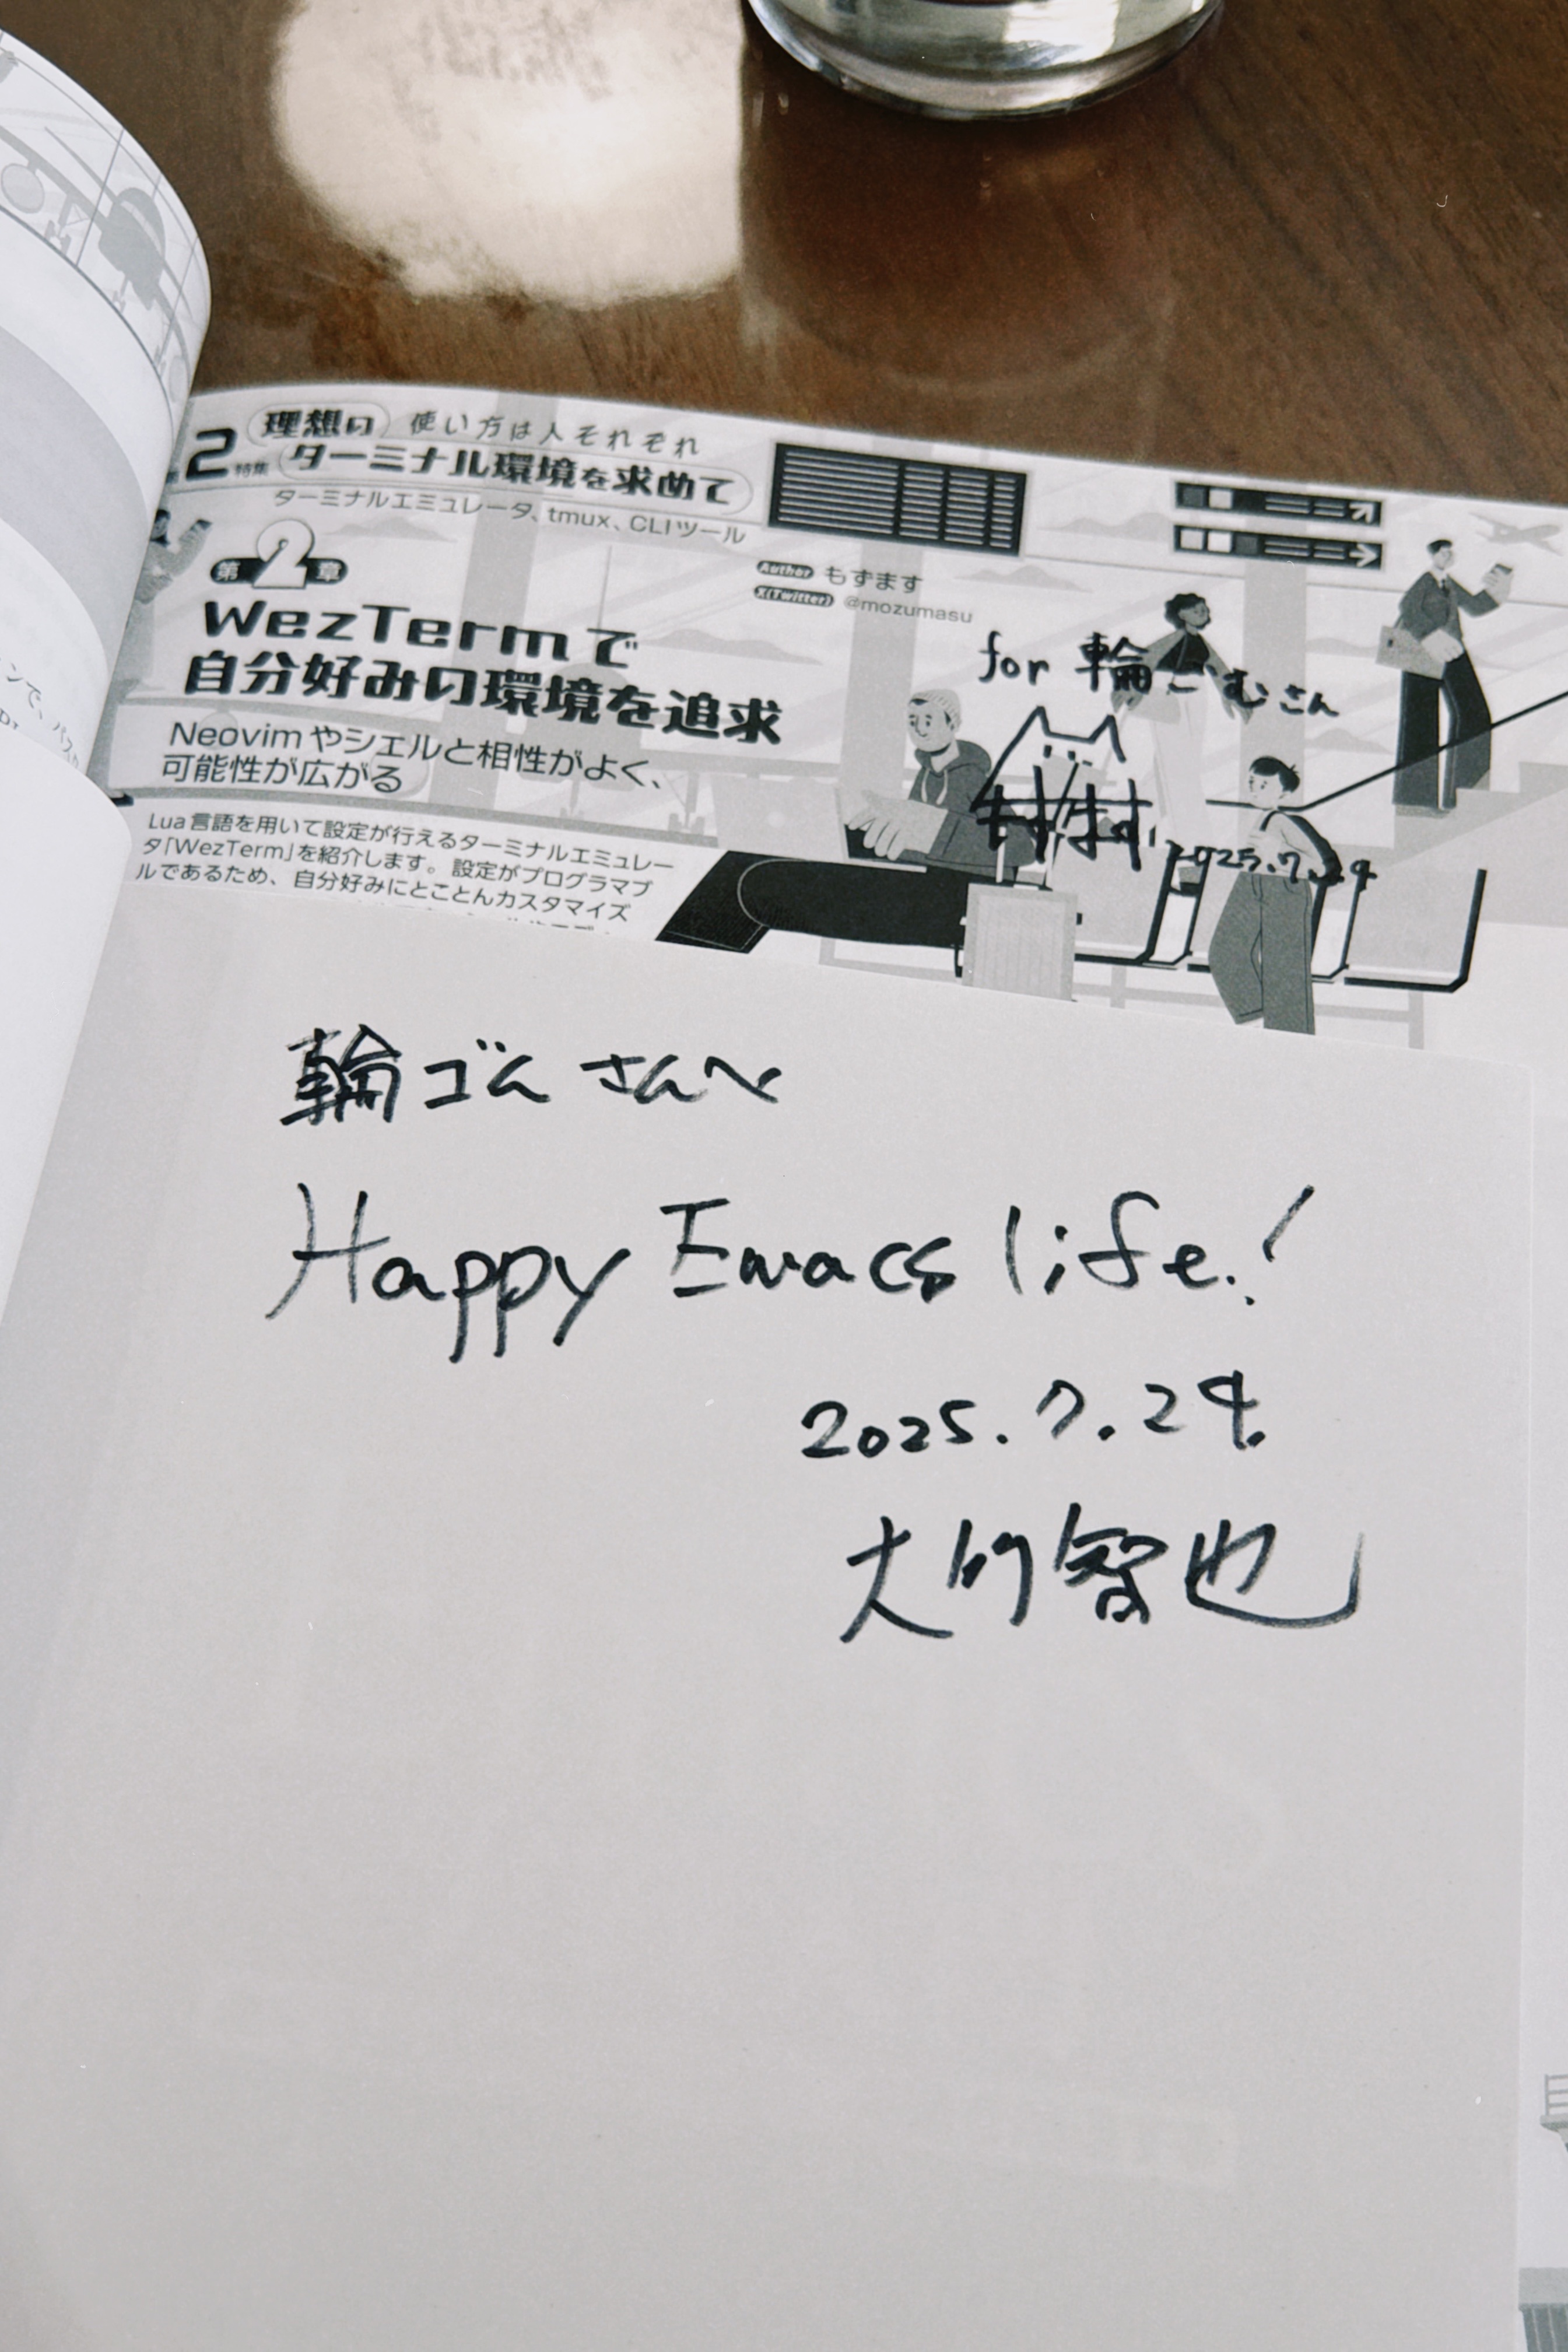 2
特集
理想の 使い方は人それぞれ
ターミナル環境を求めて
ターミナルエミュレータ、tmux、CLIツール
第2章
WezTermで
自分好みの環境を追求
Neovimやシェルと相性がよく、
可能性が広がる
Author もずます
X(Twitter) @mozumasu
Lua言語を用いて設定が行えるターミナルエミュレー
タ「WezTerm」を紹介します。設定がプログラマブ
ルであるため、自分好みにとことんカスタマイズ
for 輪ごむさん
もずます
2025.7.29
輪ゴムさんへ
Happy Emacs life!
2025.7.29.
大竹智也